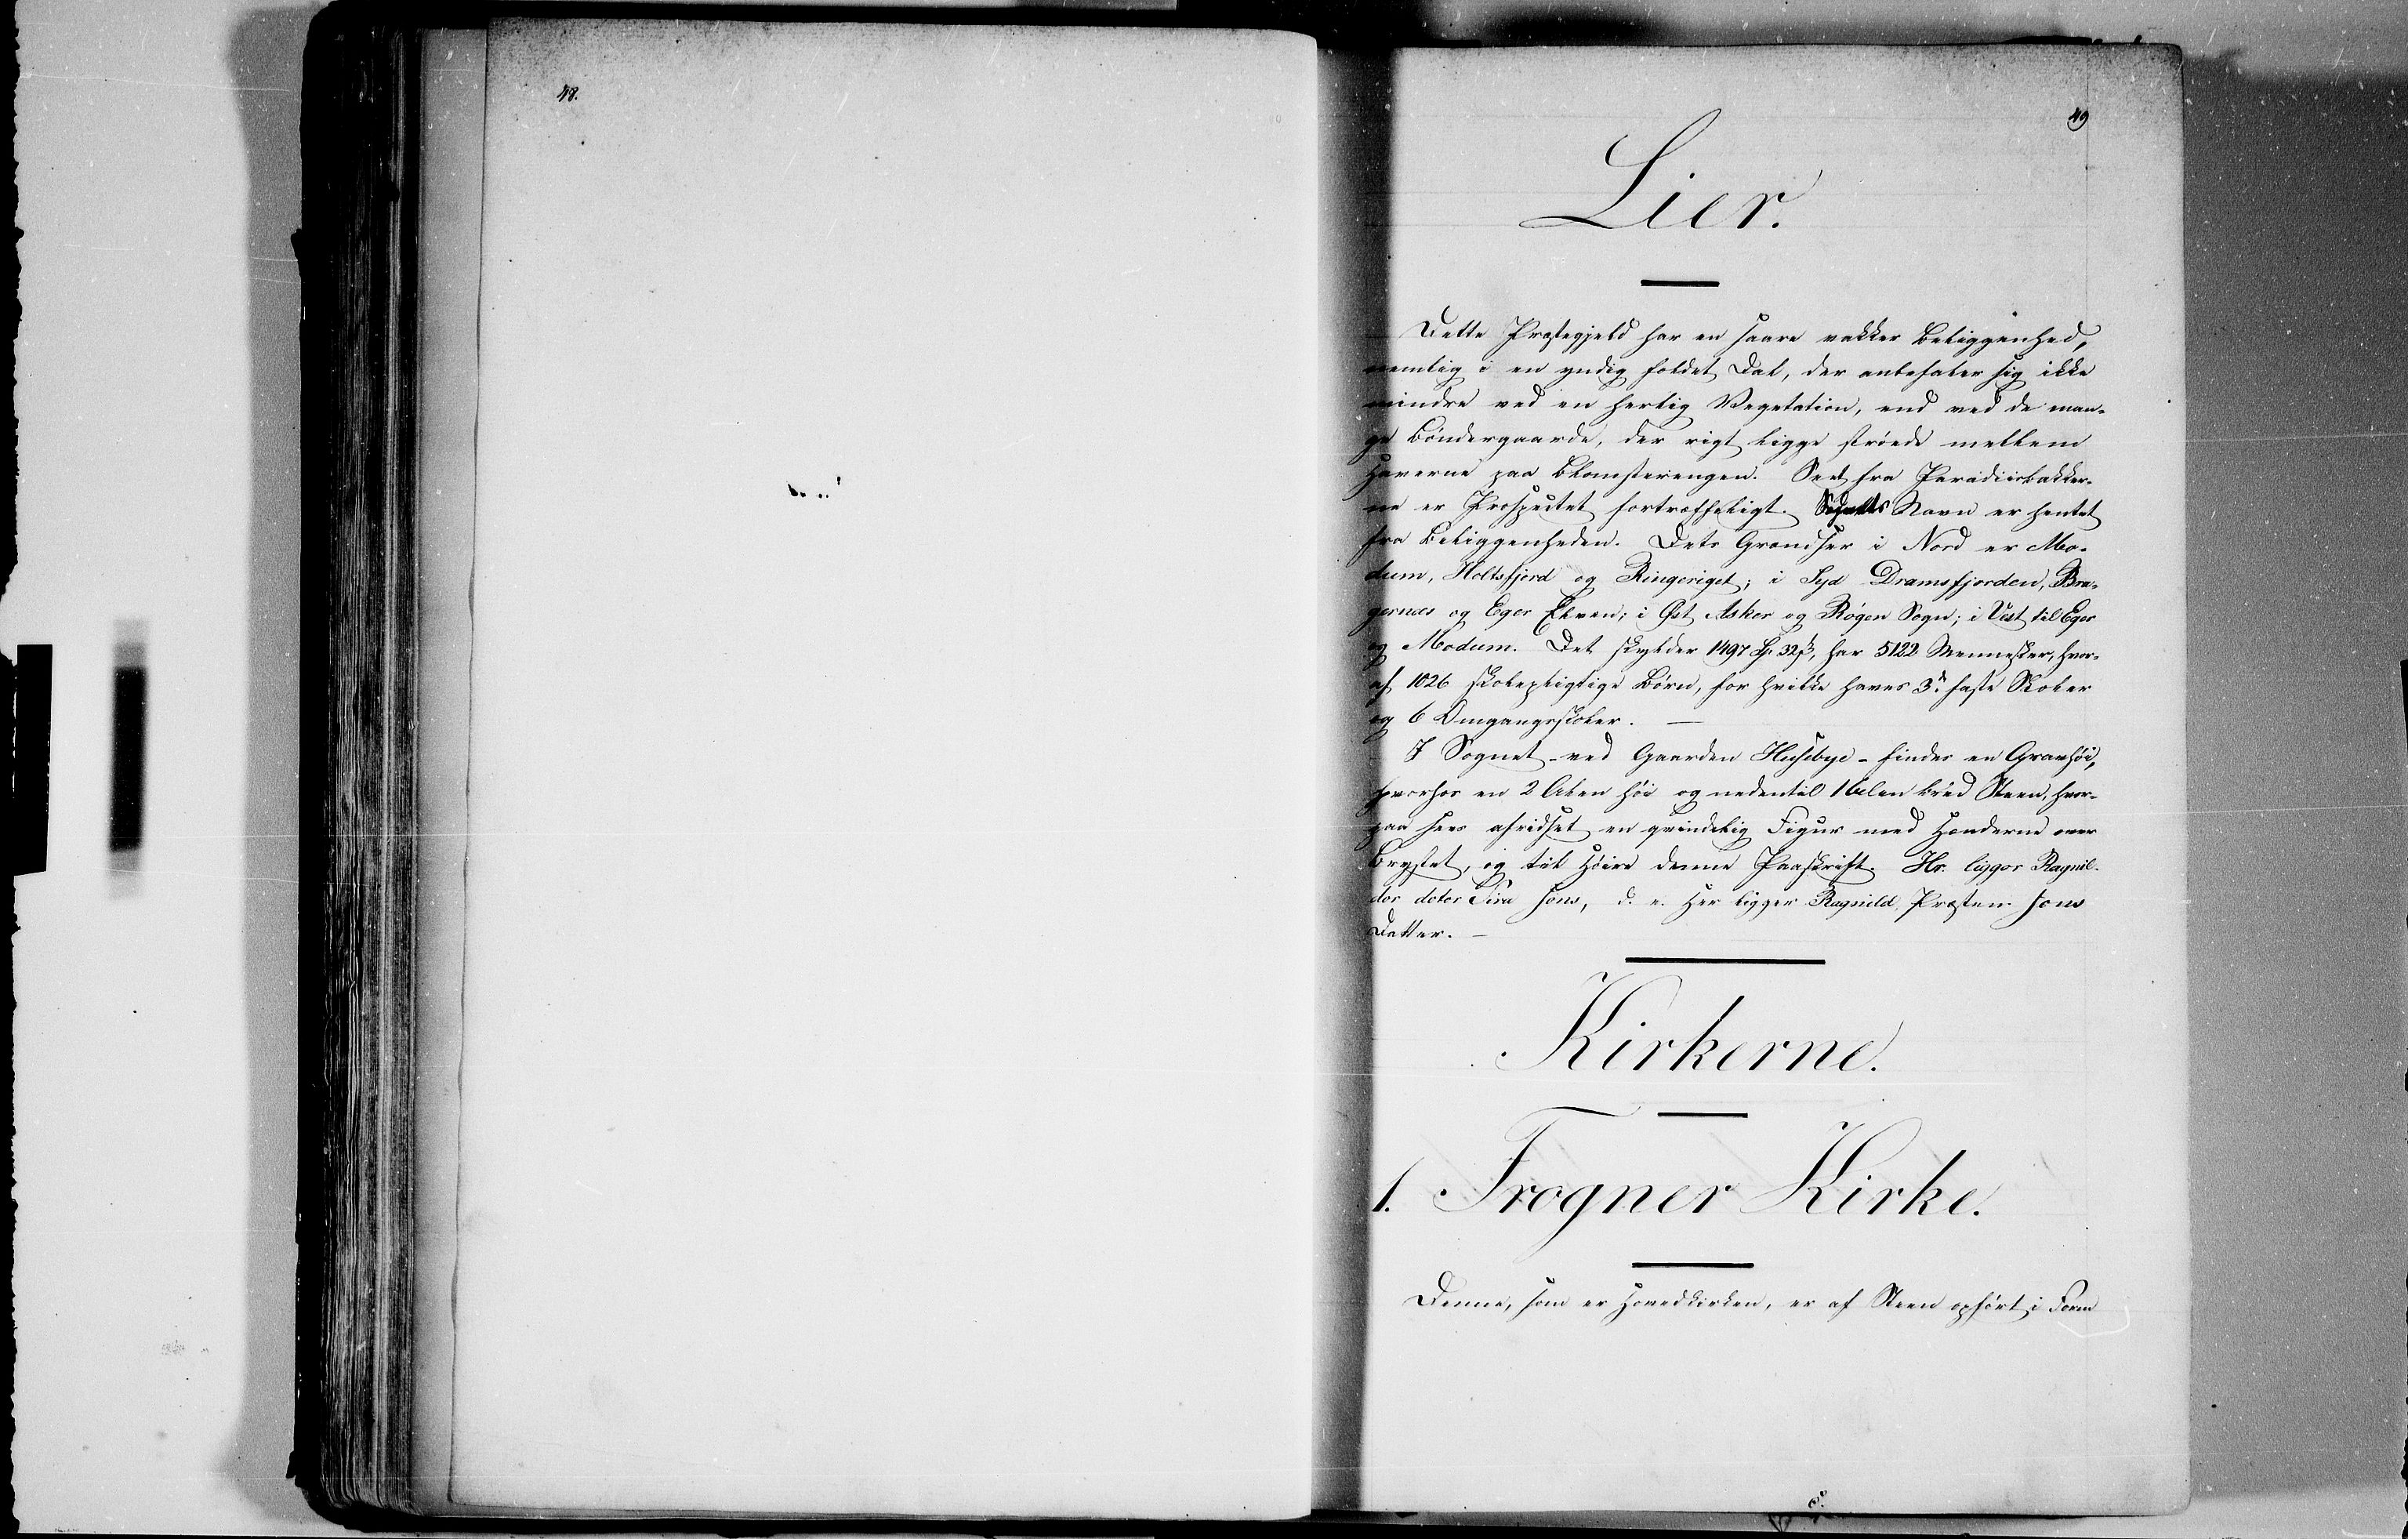 48.
49
Lier.
Dette Præstegjeld har en saare vakker Beliggenhed,
nemlig i en yndig foldet Dal, der anbefaler sig ikke
mindre ved en herlig Vegetation, end ved de man-
ge Bøndergaarde, der rigt ligge strøede mellem
Haverne paa Blomsterengen. Seet fra Paradiisbakker-
ne er Prospectet fortræffeligt. Navn er hentet
fra Beliggenheden. Dets Grændser i Nord er Mo-
dum, Holtsfjord og Ringeriget; i Syd Dramsfjorden, Bra-
gernæs og Eger Elven; i Øst Asker og Røgen Sogn; i Vest til Eger
og Modum. Det skylder 1497 32 ß, har 5122 Mennesker, hvor-
af 1026 skolepligtige Børn, for hvilke haves 3de faste Skoler
og 6 Omgangsskoler. —
I Sognet - ved Gaarden Husebye - findes en Gravhøi,
hvorhos en 2 Alen høi og nedentil 1 Alen bred Steen, hvor-
paa sees afridset en qvindelig Figur med Hænderne over
Brystet, og til Høire denne Paaskrift. Hr. ligger Ragnil-
dor dotor Sira Jons, d. e. Her ligger Ragnild, Præsten Jons
Datter. —
Kirkerne.
1. Frogner Kirke.
Denne, som er Hovedkirken, er af Steen opført i Form